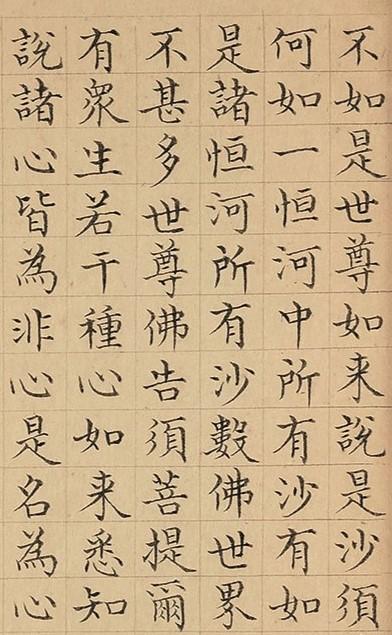 不如是世尊如来說是沙須
何如一恒河中所有沙有如
是諸恒河所有沙數佛世界
不甚多世尊佛告須菩提爾
有衆生若干種心如来悉知
說諸心皆為非心是名為心